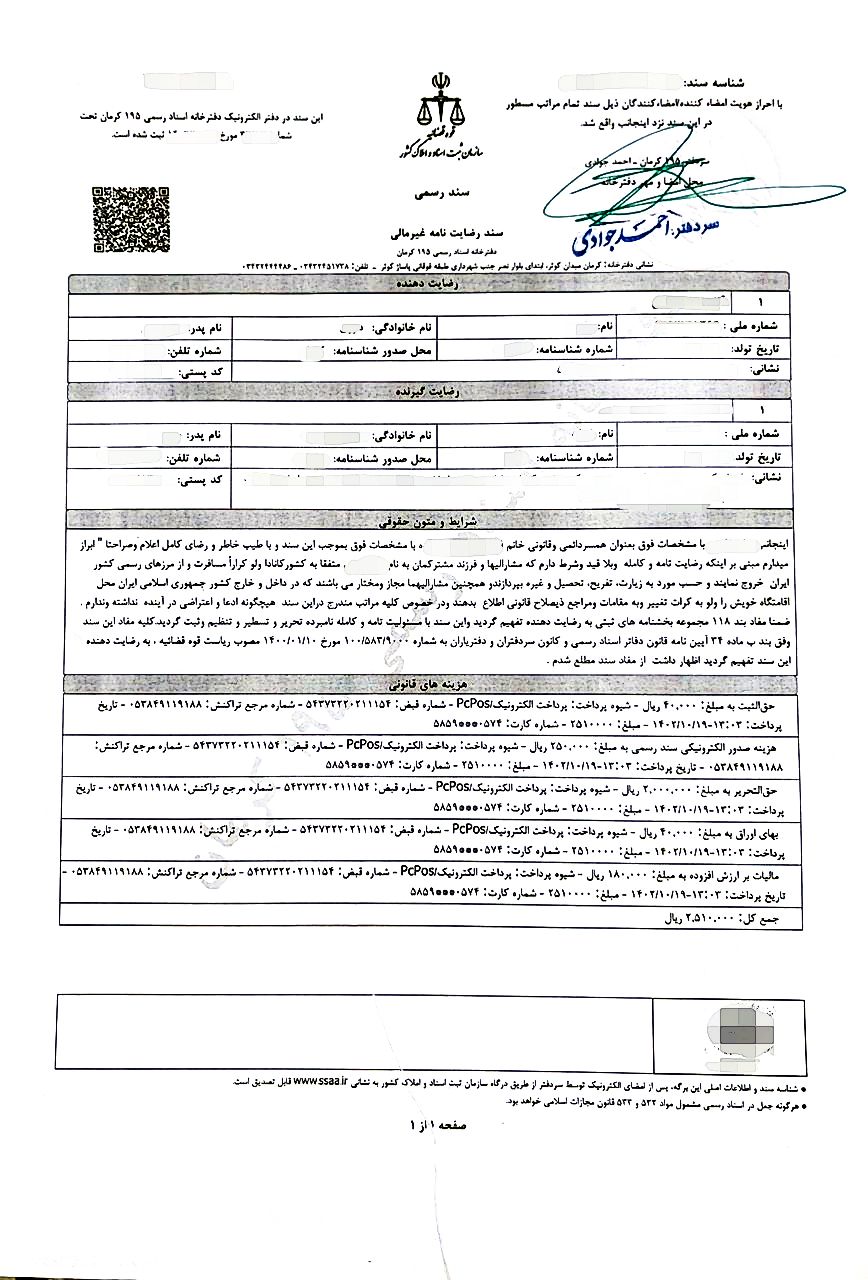 شناسه سند:
با احراز هویت امضاء کننده/امضاءکنندگان ذیل سند تمام مراتب مسطور
در این سند نزد اینجانب واقع شد.
سردفتر ۱۹۵ کرمان - احمد جوادی
محل امضا و مهر دفترخانه
سردفتر: احمد جوادی
قوه قضائیه
سازمان ثبت اسناد و املاک کشور
سند رسمی
سند رضایت نامه غیرمالی
دفترخانه اسناد رسمی ۱۹۵ کرمان
این سند در دفتر الکترونیک دفترخانه اسناد رسمی ۱۹۵ کرمان تحت
شما مورخ ثبت شده است.
نشانی دفترخانه: کرمان میدان کوثر، ابتدای بلوار نصر جنب شهرداری طبقه فوقانی پاساژ کوثر - تلفن: ۰۳۴۳۲۴۵۱۷۳۸ - ۰۳۴۳۲۴۴۴۴۸۶
رضایت دهنده
۱
شماره ملی : نام: نام خانوادگی: نام پدر:
تاریخ تولد: شماره شناسنامه: محل صدور شناسنامه: شماره تلفن:
نشانی: کد پستی:
رضایت گیرنده
۱
شماره ملی : نام: نام خانوادگی: نام پدر:
تاریخ تولد شماره شناسنامه: محل صدور شناسنامه: شماره تلفن:
نشانی: کد پستی:
شرایط و متون حقوقی
اینجانب با مشخصات فوق بعنوان همسردائمی وقانونی خانم با مشخصات فوق بموجب این سند و با طیب خاطر و رضای کامل اعلام وصراحتا " ابراز
میدارم مبنی بر اینکه رضایت تامه و کامله وبلا قید وشرط دارم که مشارالیها و فرزند مشترکمان به نام متفقا به کشورکانادا ولو کراراً مسافرت و از مرزهای رسمی کشور
ایران خروج نمایند و حسب مورد به زیارت، تفریح، تحصیل و غیره بپردازندو همچنین مشارالیهما مجاز ومختار می باشند که در داخل و خارج کشور جمهوری اسلامی ایران محل
اقامتگاه خویش را ولو به کرات تغییر وبه مقامات ومراجع ذیصلاح قانونی اطلاع بدهند ودر خصوص کلیه مراتب مندرج دراین سند هیچگونه ادعا و اعتراضی در آینده نداشته وندارم .
ضمنا مفاد بند ۱۱۸ مجموعه بخشنامه های ثبتی به رضایت دهنده تفهیم گردید واین سند با مسئولیت تامه و کامله نامبرده تحریر و تسطیر و تنظیم وثبت گردید.کلیه مفاد این سند
وفق بند ب ماده ۳۴ آیین نامه قانون دفاتر اسناد رسمی و کانون سردفتران و دفتریاران به شماره ۱۰۰/۵۸۳/۹۰۰۰ مورخ ۱۴۰۰/۰۱/۱۰ مصوب ریاست قوه قضائیه ، به رضایت دهنده
این سند تفهیم گردید اظهار داشت از مفاد سند مطلع شدم .
هزینه های قانونی
حق‌الثبت به مبلغ: ۴۰,۰۰۰ ریال - شیوه پرداخت: پرداخت الکترونیک/PcPos - شماره قبض: ۵۴۳۷۳۲۲۰۲۱۱۱۵۴ - شماره مرجع تراکنش: ۰۵۳۸۴۹۱۱۹۱۸۸ - تاریخ
پرداخت: ۱۳:۰۳-۱۴۰۲/۱۰/۱۹ - مبلغ: ۲۵۱۰۰۰۰ - شماره کارت: ۵۸۵۹***۰۵۷۴
هزینه صدور الکترونیکی سند رسمی به مبلغ: ۲۵۰,۰۰۰ ریال - شیوه پرداخت: پرداخت الکترونیک/PcPos - شماره قبض: ۵۴۳۷۳۲۲۰۲۱۱۱۵۴ - شماره مرجع تراکنش:
۰۵۳۸۴۹۱۱۹۱۸۸ - تاریخ پرداخت: ۱۳:۰۳-۱۴۰۲/۱۰/۱۹ - مبلغ: ۲۵۱۰۰۰۰ - شماره کارت: ۵۸۵۹***۰۵۷۴
حق‌التحریر به مبلغ: ۲,۰۰۰,۰۰۰ ریال - شیوه پرداخت: پرداخت الکترونیک/PcPos - شماره قبض: ۵۴۳۷۳۲۲۰۲۱۱۱۵۴ - شماره مرجع تراکنش: ۰۵۳۸۴۹۱۱۹۱۸۸ - تاریخ
پرداخت: ۱۳:۰۳-۱۴۰۲/۱۰/۱۹ - مبلغ: ۲۵۱۰۰۰۰ - شماره کارت: ۵۸۵۹***۰۵۷۴
بهای اوراق به مبلغ: ۴۰,۰۰۰ ریال - شیوه پرداخت: پرداخت الکترونیک/PcPos - شماره قبض: ۵۴۳۷۳۲۲۰۲۱۱۱۵۴ - شماره مرجع تراکنش: ۰۵۳۸۴۹۱۱۹۱۸۸ - تاریخ
پرداخت: ۱۳:۰۳-۱۴۰۲/۱۰/۱۹ - مبلغ: ۲۵۱۰۰۰۰ - شماره کارت: ۵۸۵۹***۰۵۷۴
مالیات بر ارزش افزوده به مبلغ: ۱۸۰,۰۰۰ ریال - شیوه پرداخت: پرداخت الکترونیک/PcPos - شماره قبض: ۵۴۳۷۳۲۲۰۲۱۱۱۵۴ - شماره مرجع تراکنش: ۰۵۳۸۴۹۱۱۹۱۸۸ -
تاریخ پرداخت: ۱۳:۰۳-۱۴۰۲/۱۰/۱۹ - مبلغ: ۲۵۱۰۰۰۰ - شماره کارت: ۵۸۵۹***۰۵۷۴
جمع کل: ۲,۵۱۰,۰۰۰ ریال
● شناسه سند و اطلاعات اصلی این برگه، پس از امضای الکترونیک توسط سردفتر از طریق درگاه سازمان ثبت اسناد و املاک کشور به نشانی www.ssaa.ir قابل تصدیق است.
● هرگونه جعل در اسناد رسمی مشمول مواد ۵۳۲ و ۵۳۳ قانون مجازات اسلامی خواهد بود.
صفحه ۱ از ۱